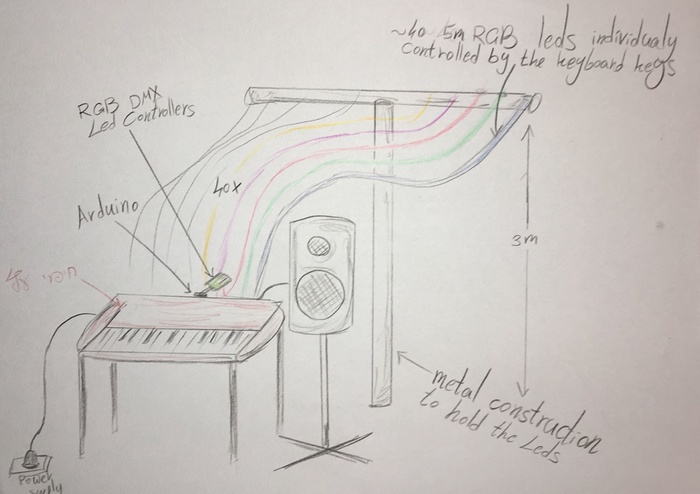 ~40 5m RGB leds individualy
controlled by the keyboard keys
RGB DMX
Led Controllers
40x
Arduino
3m
metal construction
to hold the Leds
Power